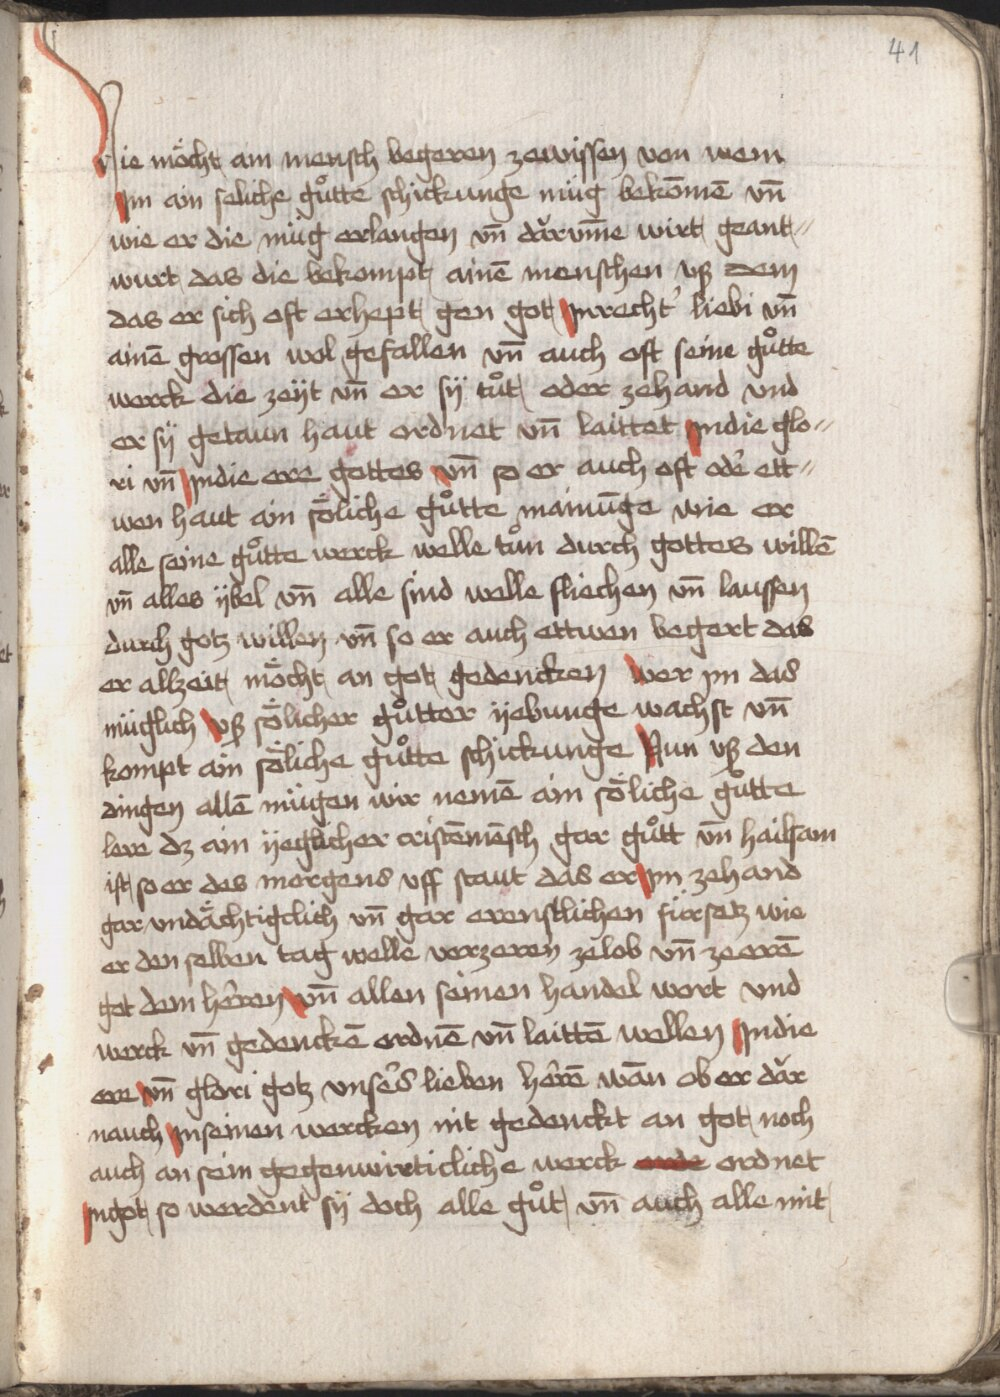 41
Hie möcht ain mensch begeren zewissen von wem
Im ain seliche gůtte schickunge müg bekōmē vn̄
wie er die müg erlangen vn̄ dǎrvm̄e wirt geant-
wurt das die bekompt ainē menschen vß dem
das er sich oft erhept gen got Inrecht' liebi vn̄
ainē grossen wol gefallen vn̄ auch oft seine gůtte
werck die zeÿt vn̄ er sÿ tůt oder zehand vnd
er sÿ getaun haut ordnet vn̄ laittet Indie glo-
ri vn̄ Indie ere gottes vn̄ so er auch oft ode' ett-
wen haut ain söliche gůtte mainūge wie er
alle seine gůtte werck welle tůn durch gottes willē
vn̄ alles ÿbel vn̄ alle sind welle fliechen vn̄ laussen
durch gotz willen vn̄ so er auch ettwen begert das
er allzeit möcht an got gedencken wer ym das
müglich vß sölicher gůtter ÿebunge wachst vn̄
kompt ain söliche gůtte schickunge Nun vß den
dingen allē mügen wir nemē ain söliche gůtte
lere dz ain ÿeglicher cristēmēsch gar gůtt vn̄ hailsam
ist so er des morgens vff staut das er Im zehand
gar vndächtigclich vn̄ gar erenstlichen fürsetz wie
er den selben tag welle verzeren zelob vn̄ zeerē
got dem he'ren vn̄ allen seinen handel wort vnd
werck vn̄ gedenckē ordnē vn̄ laittē wellen Indie
ere vn̄ glori gotz vnse's lieben he'rē wān ob er dǎr
nauch Inseinen wercken nit gedenckt an got noch
auch an sein gegenwirticliche werck orde ordnet
Ingot so werdent sÿ doch alle gůt vn̄ auch alle mit